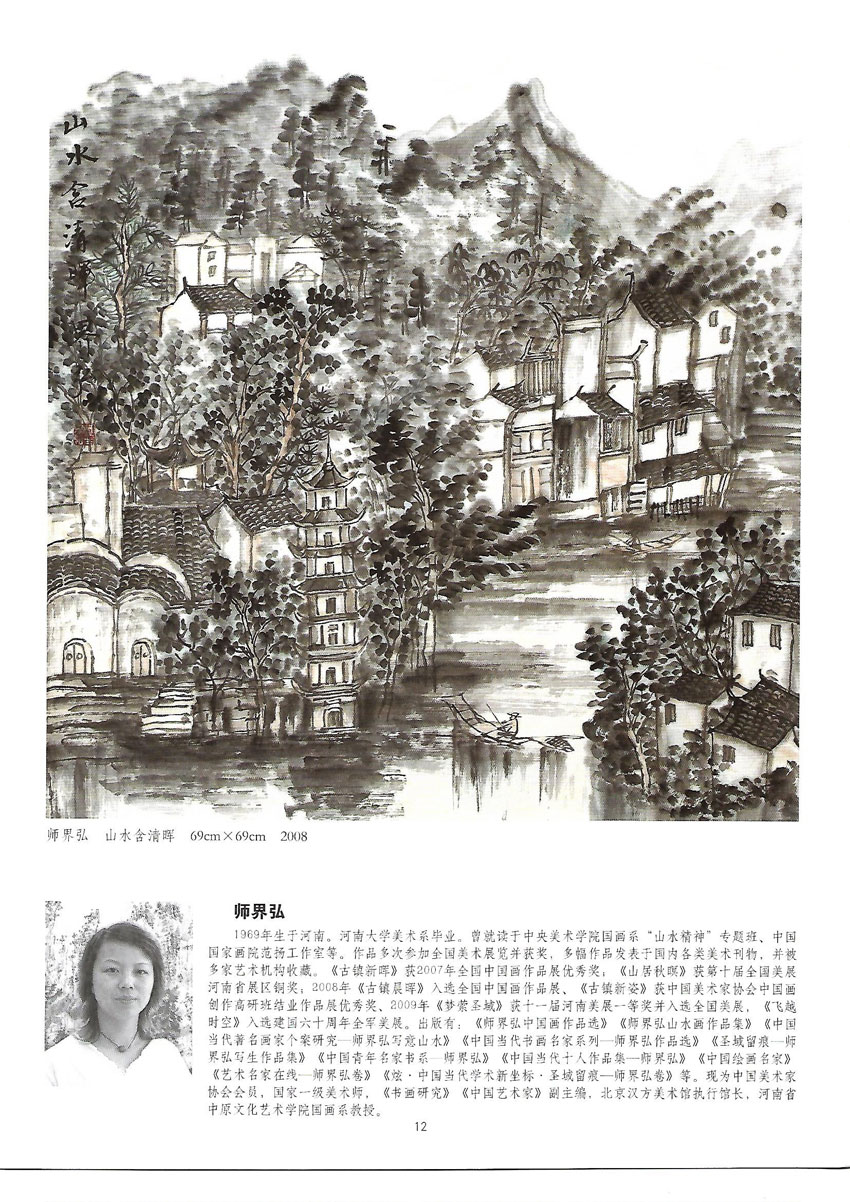 山水含清晖 界弘
师界弘 山水含清晖 69cm×69cm 2008
师界弘
1969年生于河南。河南大学美术系毕业。曾就读于中央美术学院国画系“山水精神”专题班、中国
国家画院范扬工作室等。作品多次参加全国美术展览并获奖，多幅作品发表于国内各类美术刊物，并被
多家艺术机构收藏。《古镇新晖》获2007年全国中国画作品展优秀奖；《山居秋暝》获第十届全国美展
河南省展区铜奖；2008年《古镇晨晖》入选全国中国画作品展、《古镇新姿》获中国美术家协会中国画
创作高研班结业作品展优秀奖、2009年《梦萦圣城》获十一届河南美展一等奖并入选全国美展，《飞越
时空》入选建国六十周年全军美展。出版有：《师界弘中国画作品选》《师界弘山水画作品集》《中国
当代著名画家个案研究—师界弘写意山水》《中国当代书画名家系列—师界弘作品选》《圣城留痕—师
界弘写生作品集》《中国青年名家书系—师界弘》《中国当代十人作品集—师界弘》《中国绘画名家》
《艺术名家在线—师界弘卷》《炫·中国当代学术新坐标·圣城留痕—师界弘卷》等。现为中国美术家
协会会员，国家一级美术师，《书画研究》《中国艺术家》副主编，北京汉方美术馆执行馆长，河南省
中原文化艺术学院国画系教授。
12